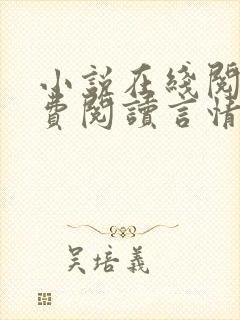 小説在綫閱
費閱讀言情
吴培義